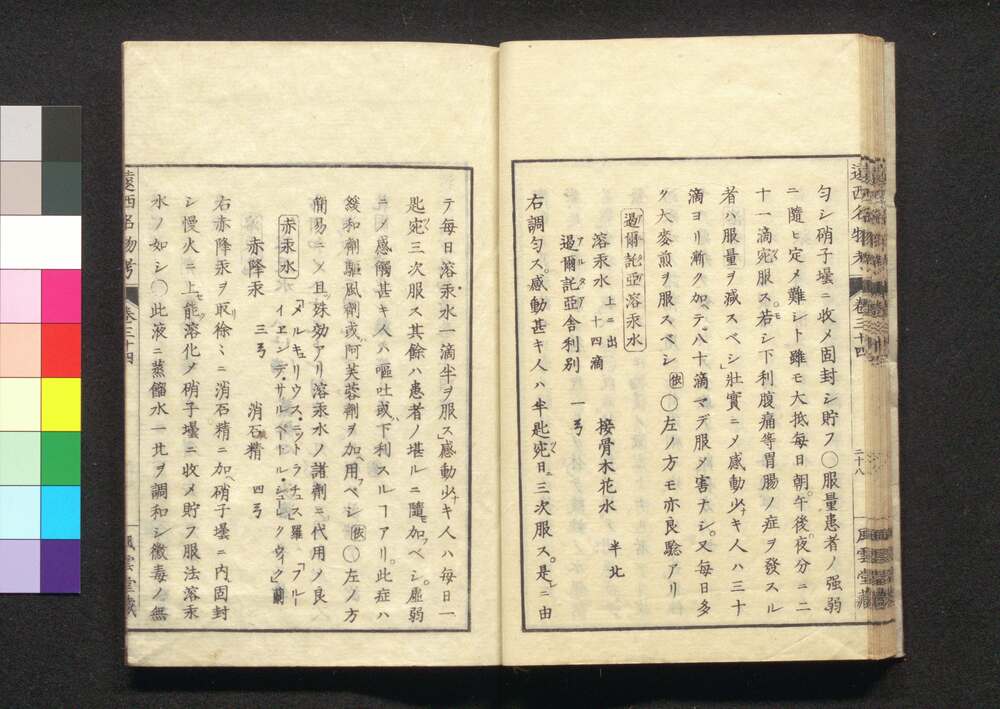 遠西名物考 卷三十四 二十八 風雲堂藏
匀シ硝子壜ニ收メ固封シ貯フ〇服量患者ノ强弱
ニ隨ヒ定メ難シト雖モ大抵毎日朝午後夜分ニ二
十一滴宛服ス若シ下利腹痛等胃腸ノ症ヲ發スル
者ハ服量ヲ減スベシ」壯實ニメ感動少キ人ハ三十
滴ヨリ漸ク加テ八十滴マデ服メ害ナシ又毎日多
ク大麥煎ヲ服スベシ㊡〇左ノ方モ亦良驗アリ
過爾託亞溶汞水
溶汞水 上ニ出 十四滴 接骨木花水 半北
過爾託亞舎利別 一弓
アルタア
右調匀ス感動甚キ人ハ半匙宛日ニ三次服ス是ニ由
テ毎日溶汞水一滴半ヲ服ス」感動少キ人ハ毎日一
匙宛三次服ス其餘ハ患者ノ堪ルニ隨加ベシ虛弱
ニメ感觸甚キ人ハ嘔吐或下利スルヿアリ此症ハ
緩和劑驅風劑或阿芙蓉劑ヲ加用ベシ〇左ノ方
簡易ニメ且殊効アリ溶汞水ノ諸劑ニ代用メ良
赤汞水 「メルキュリウス・ニットラチュス」羅 「フルー
イエンデ・サルペートル・シュークウイク」蘭
赤降汞 三弓 消石精 四弓
右赤降汞ヲ取徐々ニ消石精ニ加ヘ硝子壜ニ内固封
シ慢火ニ上能溶化メ硝子壜ニ收メ貯フ服法溶汞
水ノ如シ〇此液ニ蒸餾水一北ヲ調和シ黴毒ノ無
遠西名物考 卷三十四 風雲堂藏